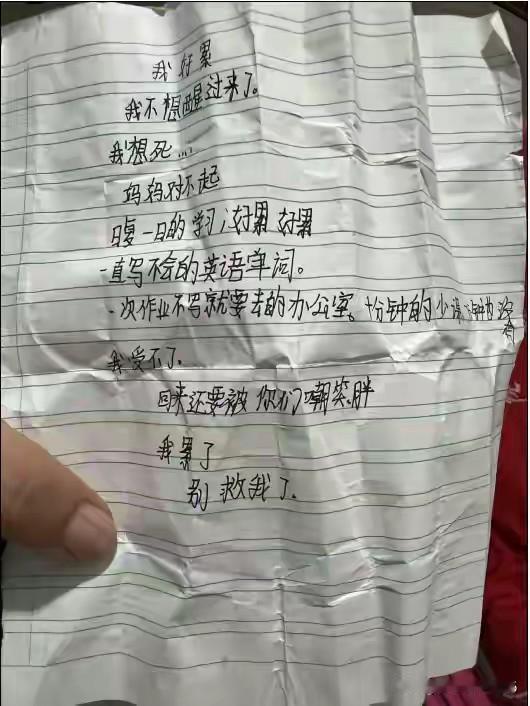 我好累
我不想醒过来了。
我想死...
妈妈对不起
日复一日的学习,好累 好累
一直写不会的英语单词。
一次作业不写就要去的办公室。十分钟的少误 钟的没有
我受不了.
回来还要被你们嘲笑胖
我累了
别救我了.